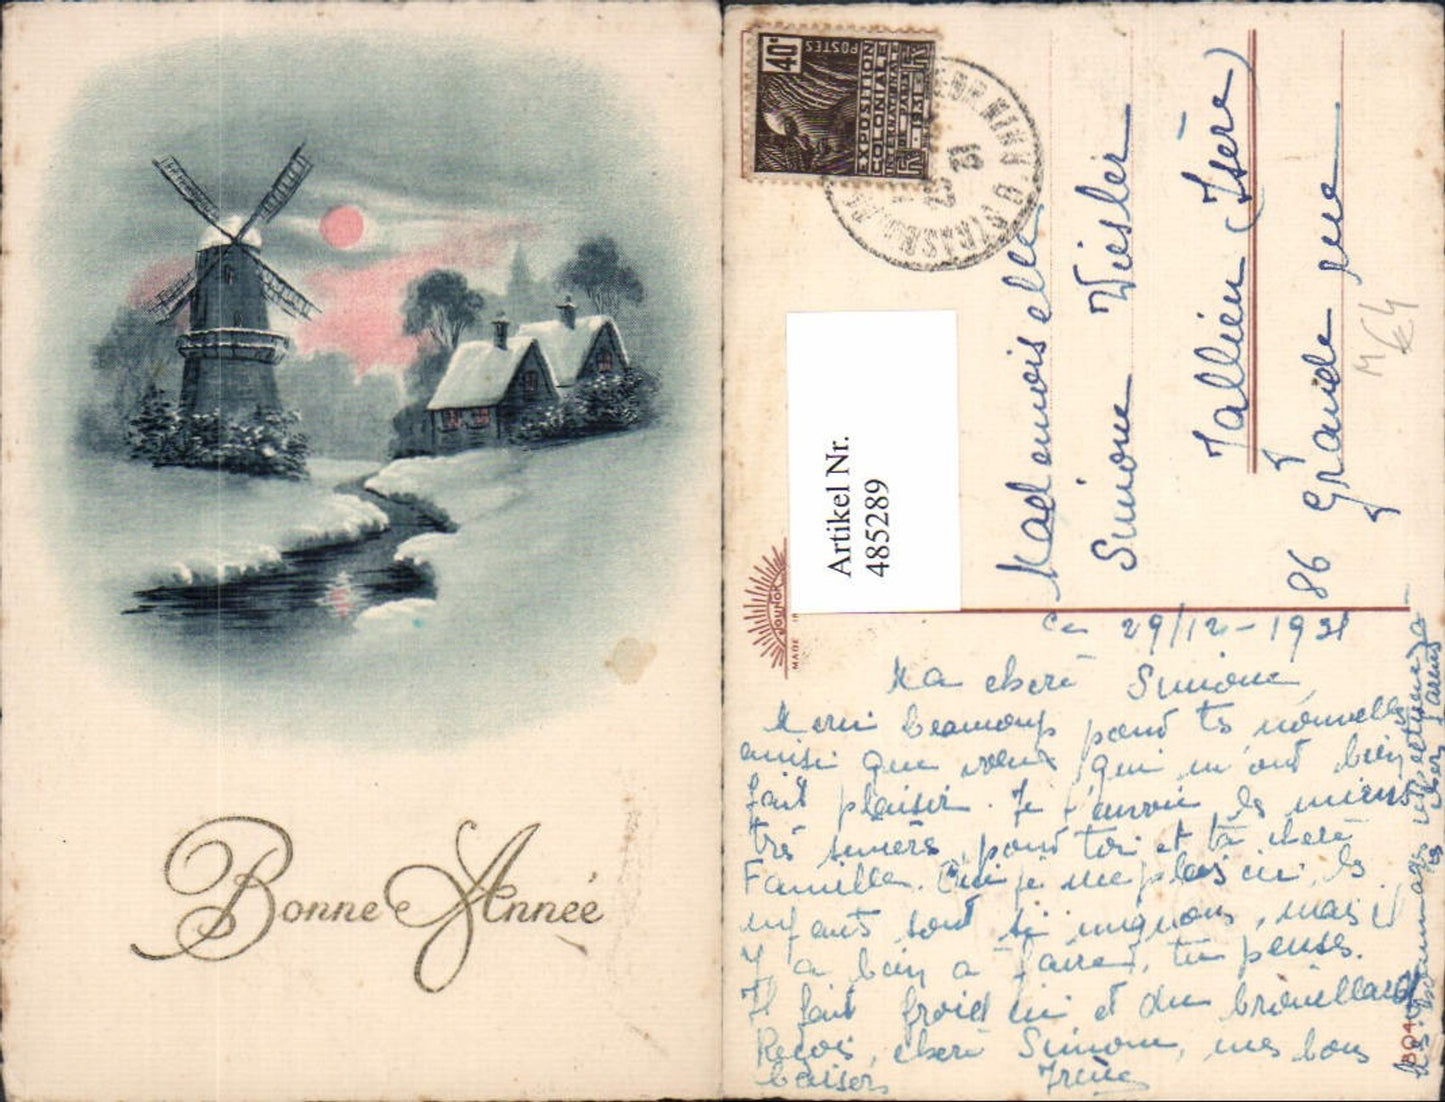 Bonne Année
40c
POSTES
EXPOSITION
COLONIALE
INTERNATIONALE
DE PARIS
1931
Artikel Nr.
485289
Mademoiselle
Simone Wiesler
Jallieu (Isère)
86 Grande rue
M64
MADE
ce 29/12-1931
Ma cherè Simone,
Merci beaucoup pour tes nouvelles
ainsi que voeux, qui m'ont bien
fait plaisir. Je t'envoie les miens
très sincers, pour toi et ta cherè
Famille. Oui je me plais ici, les
enfants sont si mignons, mais il
y a bien a faire, tu penses.
Il fait froid ici et du brouillard
Reçois, cherè Simone, mes bons
baisers Irène